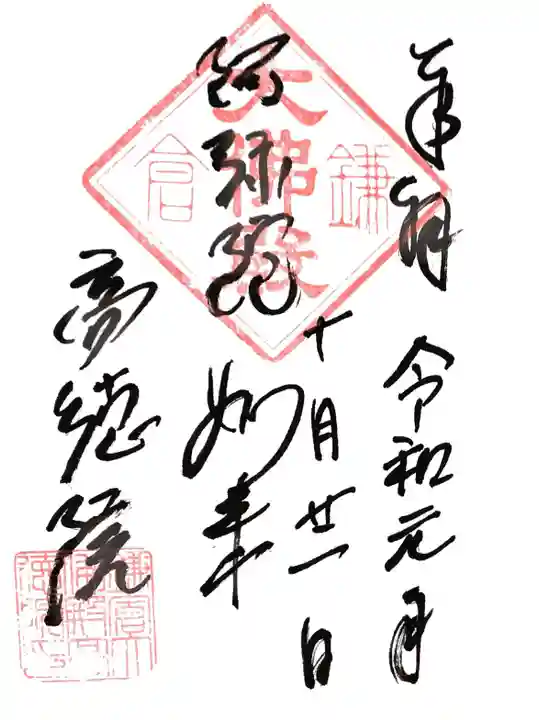 奉拝 令和元年
十月廿一日
阿弥陀如来
高徳院
鎌倉
大佛殿